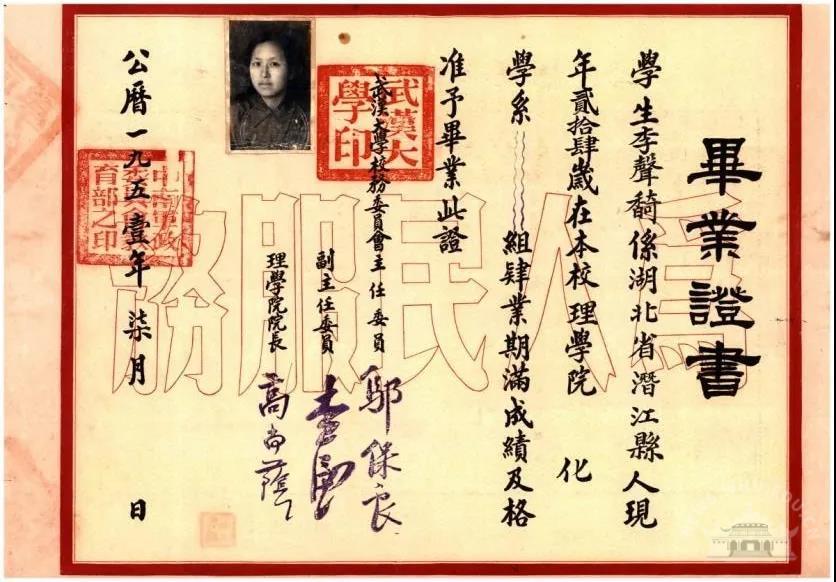 畢業證書
學生李聲係湖北省潛江縣人現
年貳拾肆歲在本校理學院 化
學系 組肄業期滿成績及格
准予畢業此證
武漢大學校務委員會主任委員 鄔保良
副主任委員
理學院院長 高尚蔭
公曆一九五壹年柒月 日
武漢大學印
育部之印
爲人民服務